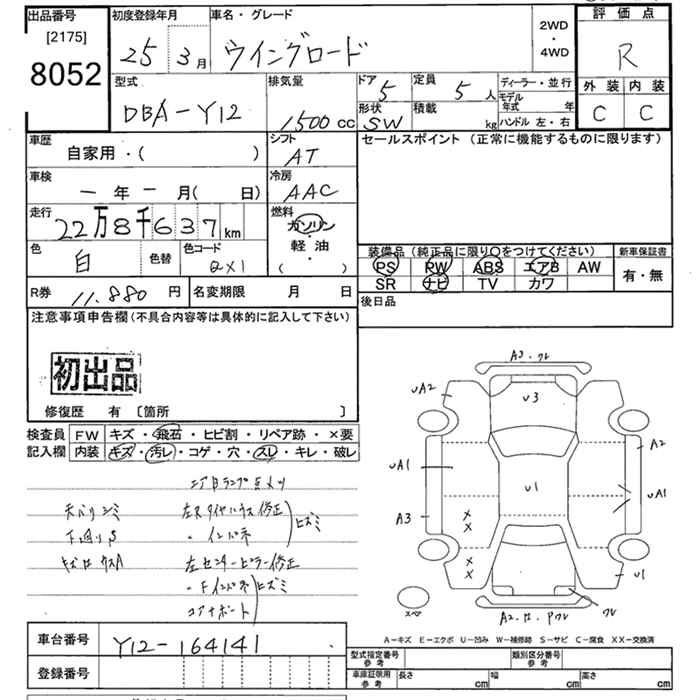 出品番号
[2175]
8052
初度登録年月
25 3月
車名・グレード
ウイングロード
2WD
・
4WD
評価点
R
外装 内装
C C
型式
DBA-Y12
排気量
1500cc
ドア
5
定員
5人
形状
SW
積載
kg
ディーラー・並行
モデル年式 年
ハンドル 左・右
車歴
自家用・( )
シフト
AT
セールスポイント(正常に機能するものに限ります)
車検
ー年ー月( 日)
冷房
AAC
走行
22万8千637km
燃料
ガソリン
・
軽油
・
( )
色
白
色替
色コード
QX1
装備品(純正品に限り○をつけてください)
PS PW ABS エアB AW
SR ナビ TV カワ
新車保証書
有・無
R券 11,880円
名変期限 月 日
後日品
注意事項申告欄(不具合内容等は具体的に記入して下さい)
初出品
修復歴 有 〔箇所 〕
検査員記入欄
FW キズ・飛石・ヒビ割・リペア跡・×要
内装 キズ・汚レ・コゲ・穴・スレ・キレ・破レ
下廻りS
ヒズミ
左センターピラー修正
ヒズミ
A3・ワレ
UA2
U3
A2
UA1
U1
UA1
A3
U1
ワレ
スペア
A-キズ E-エクボ U-凹み W-補修跡 S-サビ C-腐食 XX-交換済
車台番号
Y12-164141
登録番号
型式指定番号
参考
類別区分番号
参考
車庫証明用
参考
長さ cm
幅 cm
高さ cm